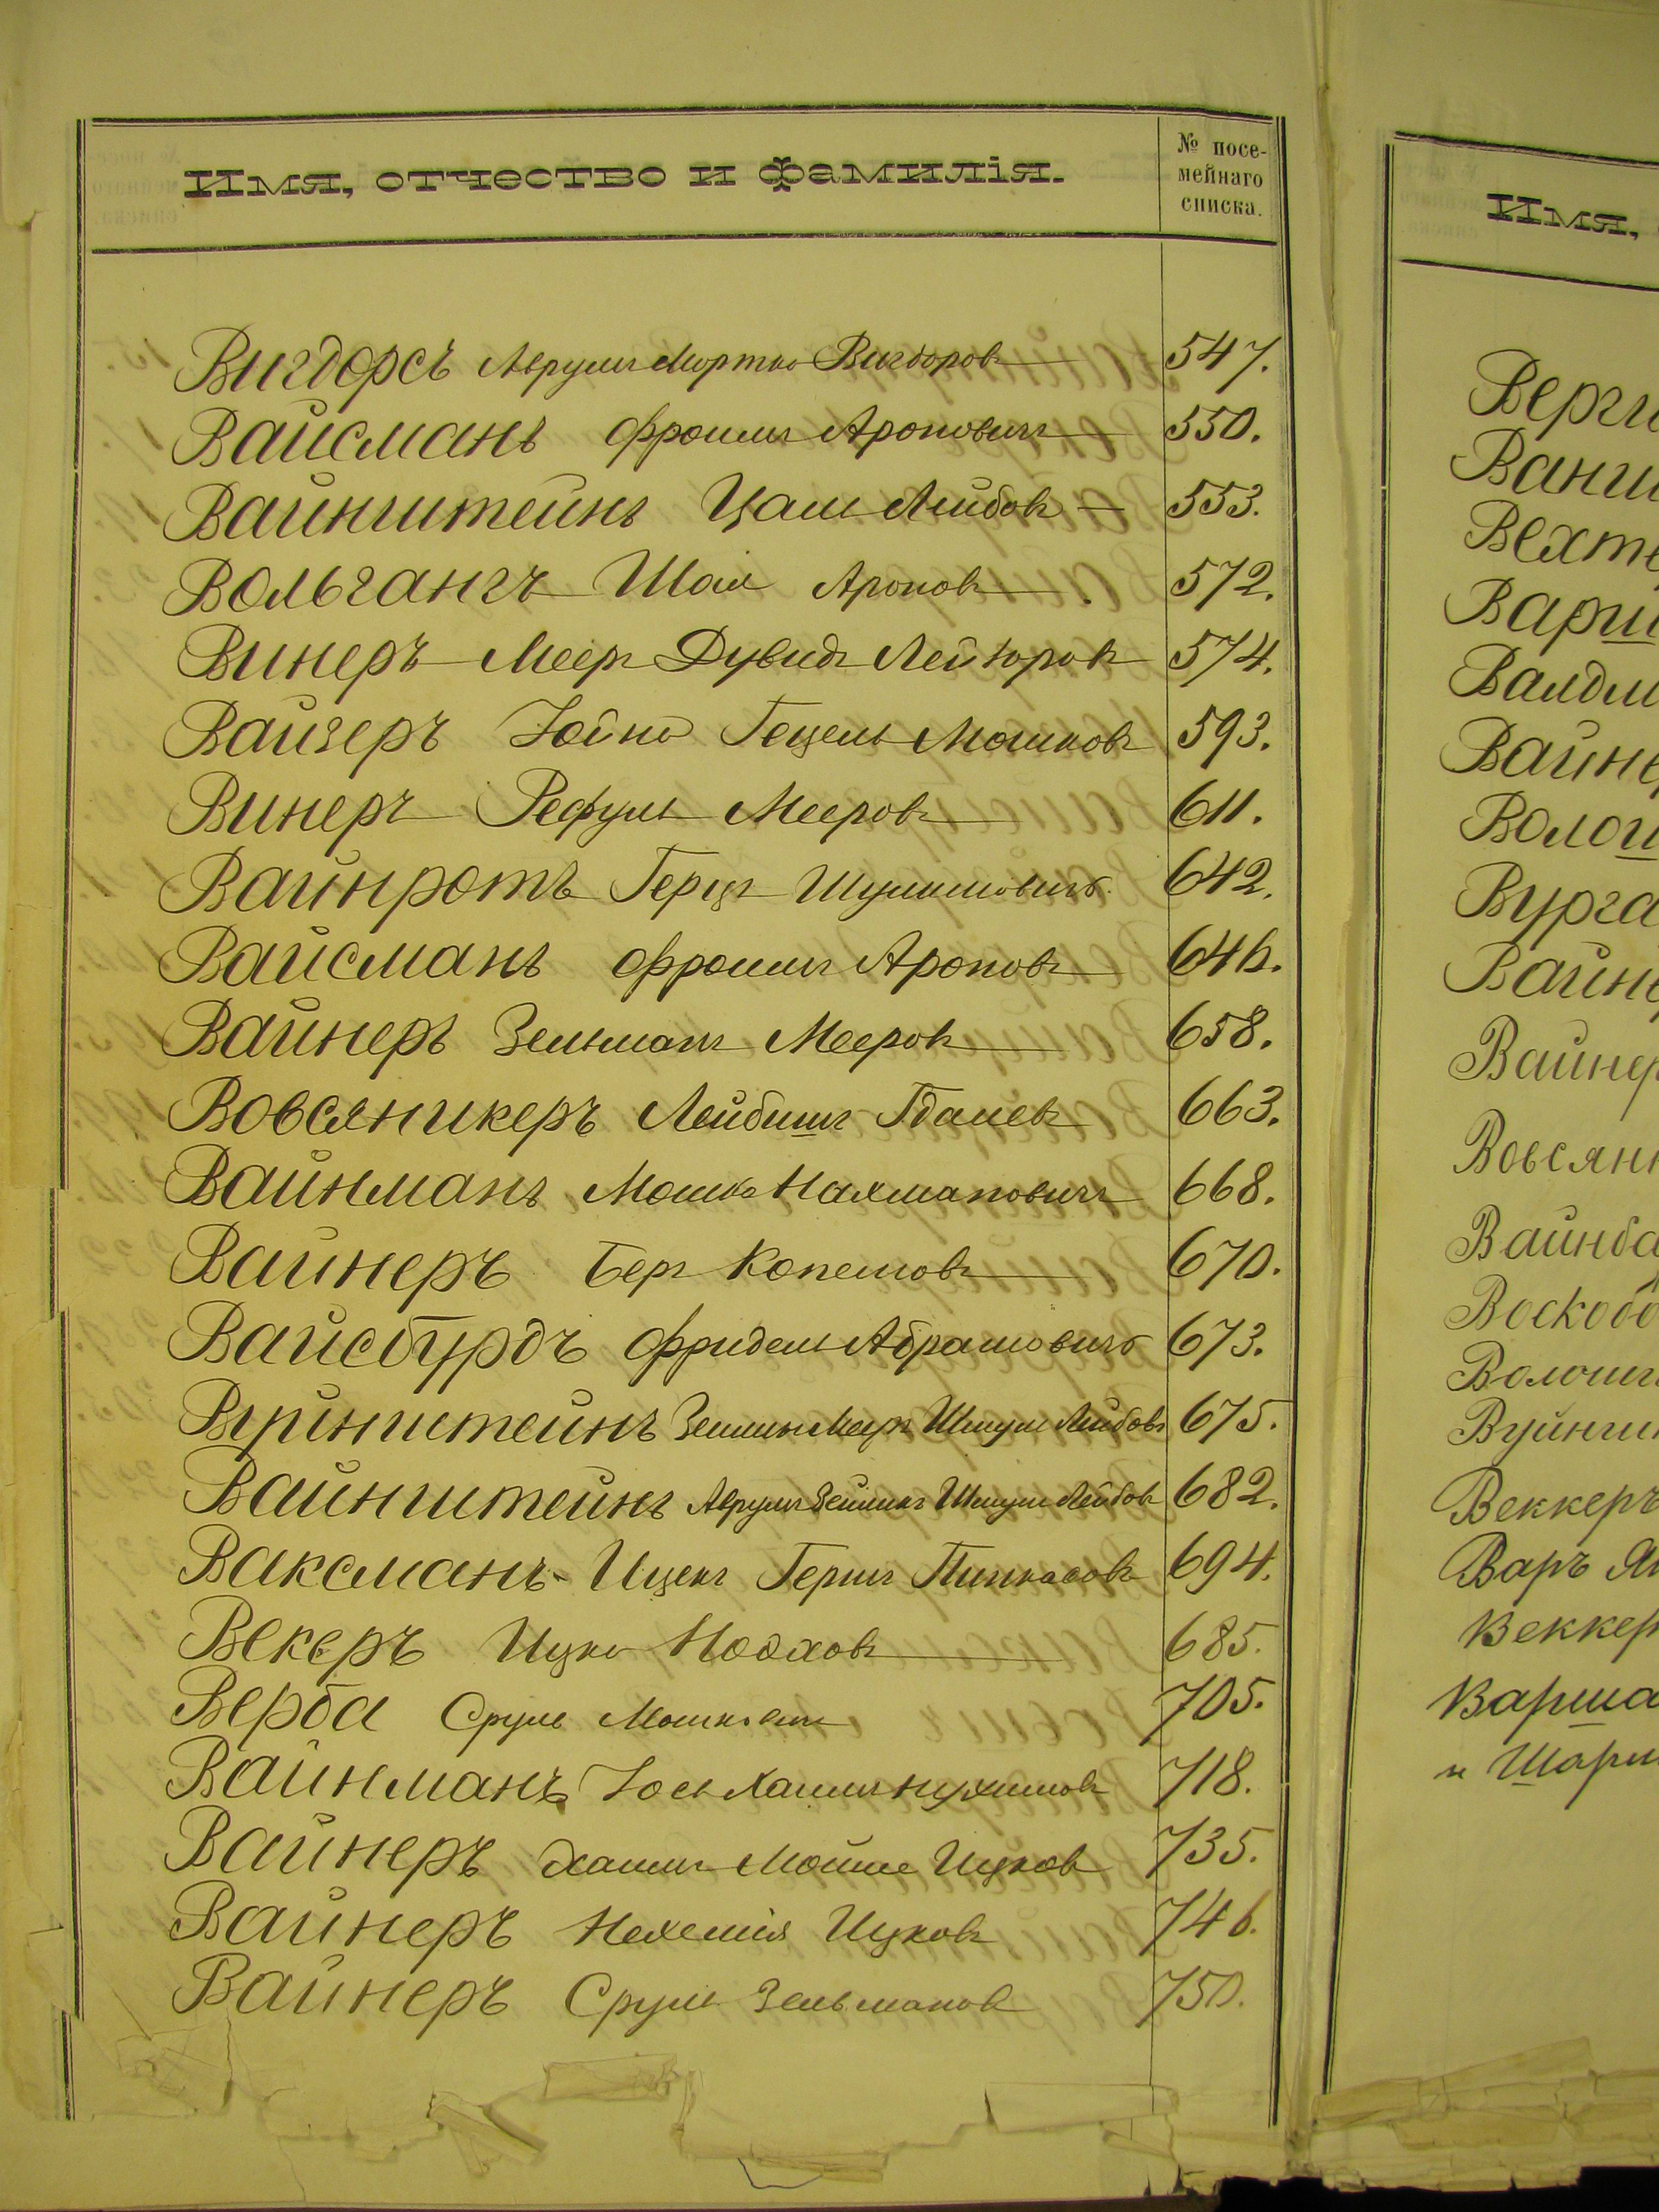 Имя, отчество и фамилія.
№ посе-
мейнаго
списка.
Вигдорсъ Аврумъ Мортко Вигдоровъ 547.
Вайсманъ Фроимъ Ароновичъ 550.
Вайнштейнъ Цаль Лейбовъ 553.
Вольгангъ Шая Ароновъ 572.
Винеръ Мееръ Дувидъ 574.
Вайзеръ Іойно Гецель Мошковъ 593.
Винеръ Рефуль Мееровъ 611.
Вайнротъ Герцъ Шулимовичъ 642.
Вайсманъ Фроимъ Ароновъ 646.
Вайнеръ Зельманъ Мееровъ 658.
Вовсяникеръ Лейбишъ Гдалевъ 663.
Вайнманъ Мошко Нахмановичъ 668.
Вайнеръ Беръ Копеловъ 670.
Вайсбурдъ Фридель Абрамовичъ 673.
Мееръ Шмуль Лейбовъ 675.
Вайнштейнъ Аврумъ Зейликъ Шмуль Лейбовъ 682.
Ваксманъ Ицекъ Гершъ Пинкасовъ 694.
Векеръ Ицко 685.
Верба Сруль 705.
Вайнманъ Іось Хаимъ Нухимовъ 718.
Вайнеръ Хаимъ Мойше Ицковъ 735.
Вайнеръ Нехемія Ицковъ 746.
Вайнеръ Сруль Зельмановъ 750.
Имя,
Верги
Вехте
Варш
Валдм
Вайне
Волош
Вурга
Вайне
Вайнер
Вовсян
Вайнба
Воскобо
Веккеръ
Варъ
Веккер
Варша
и Шарм